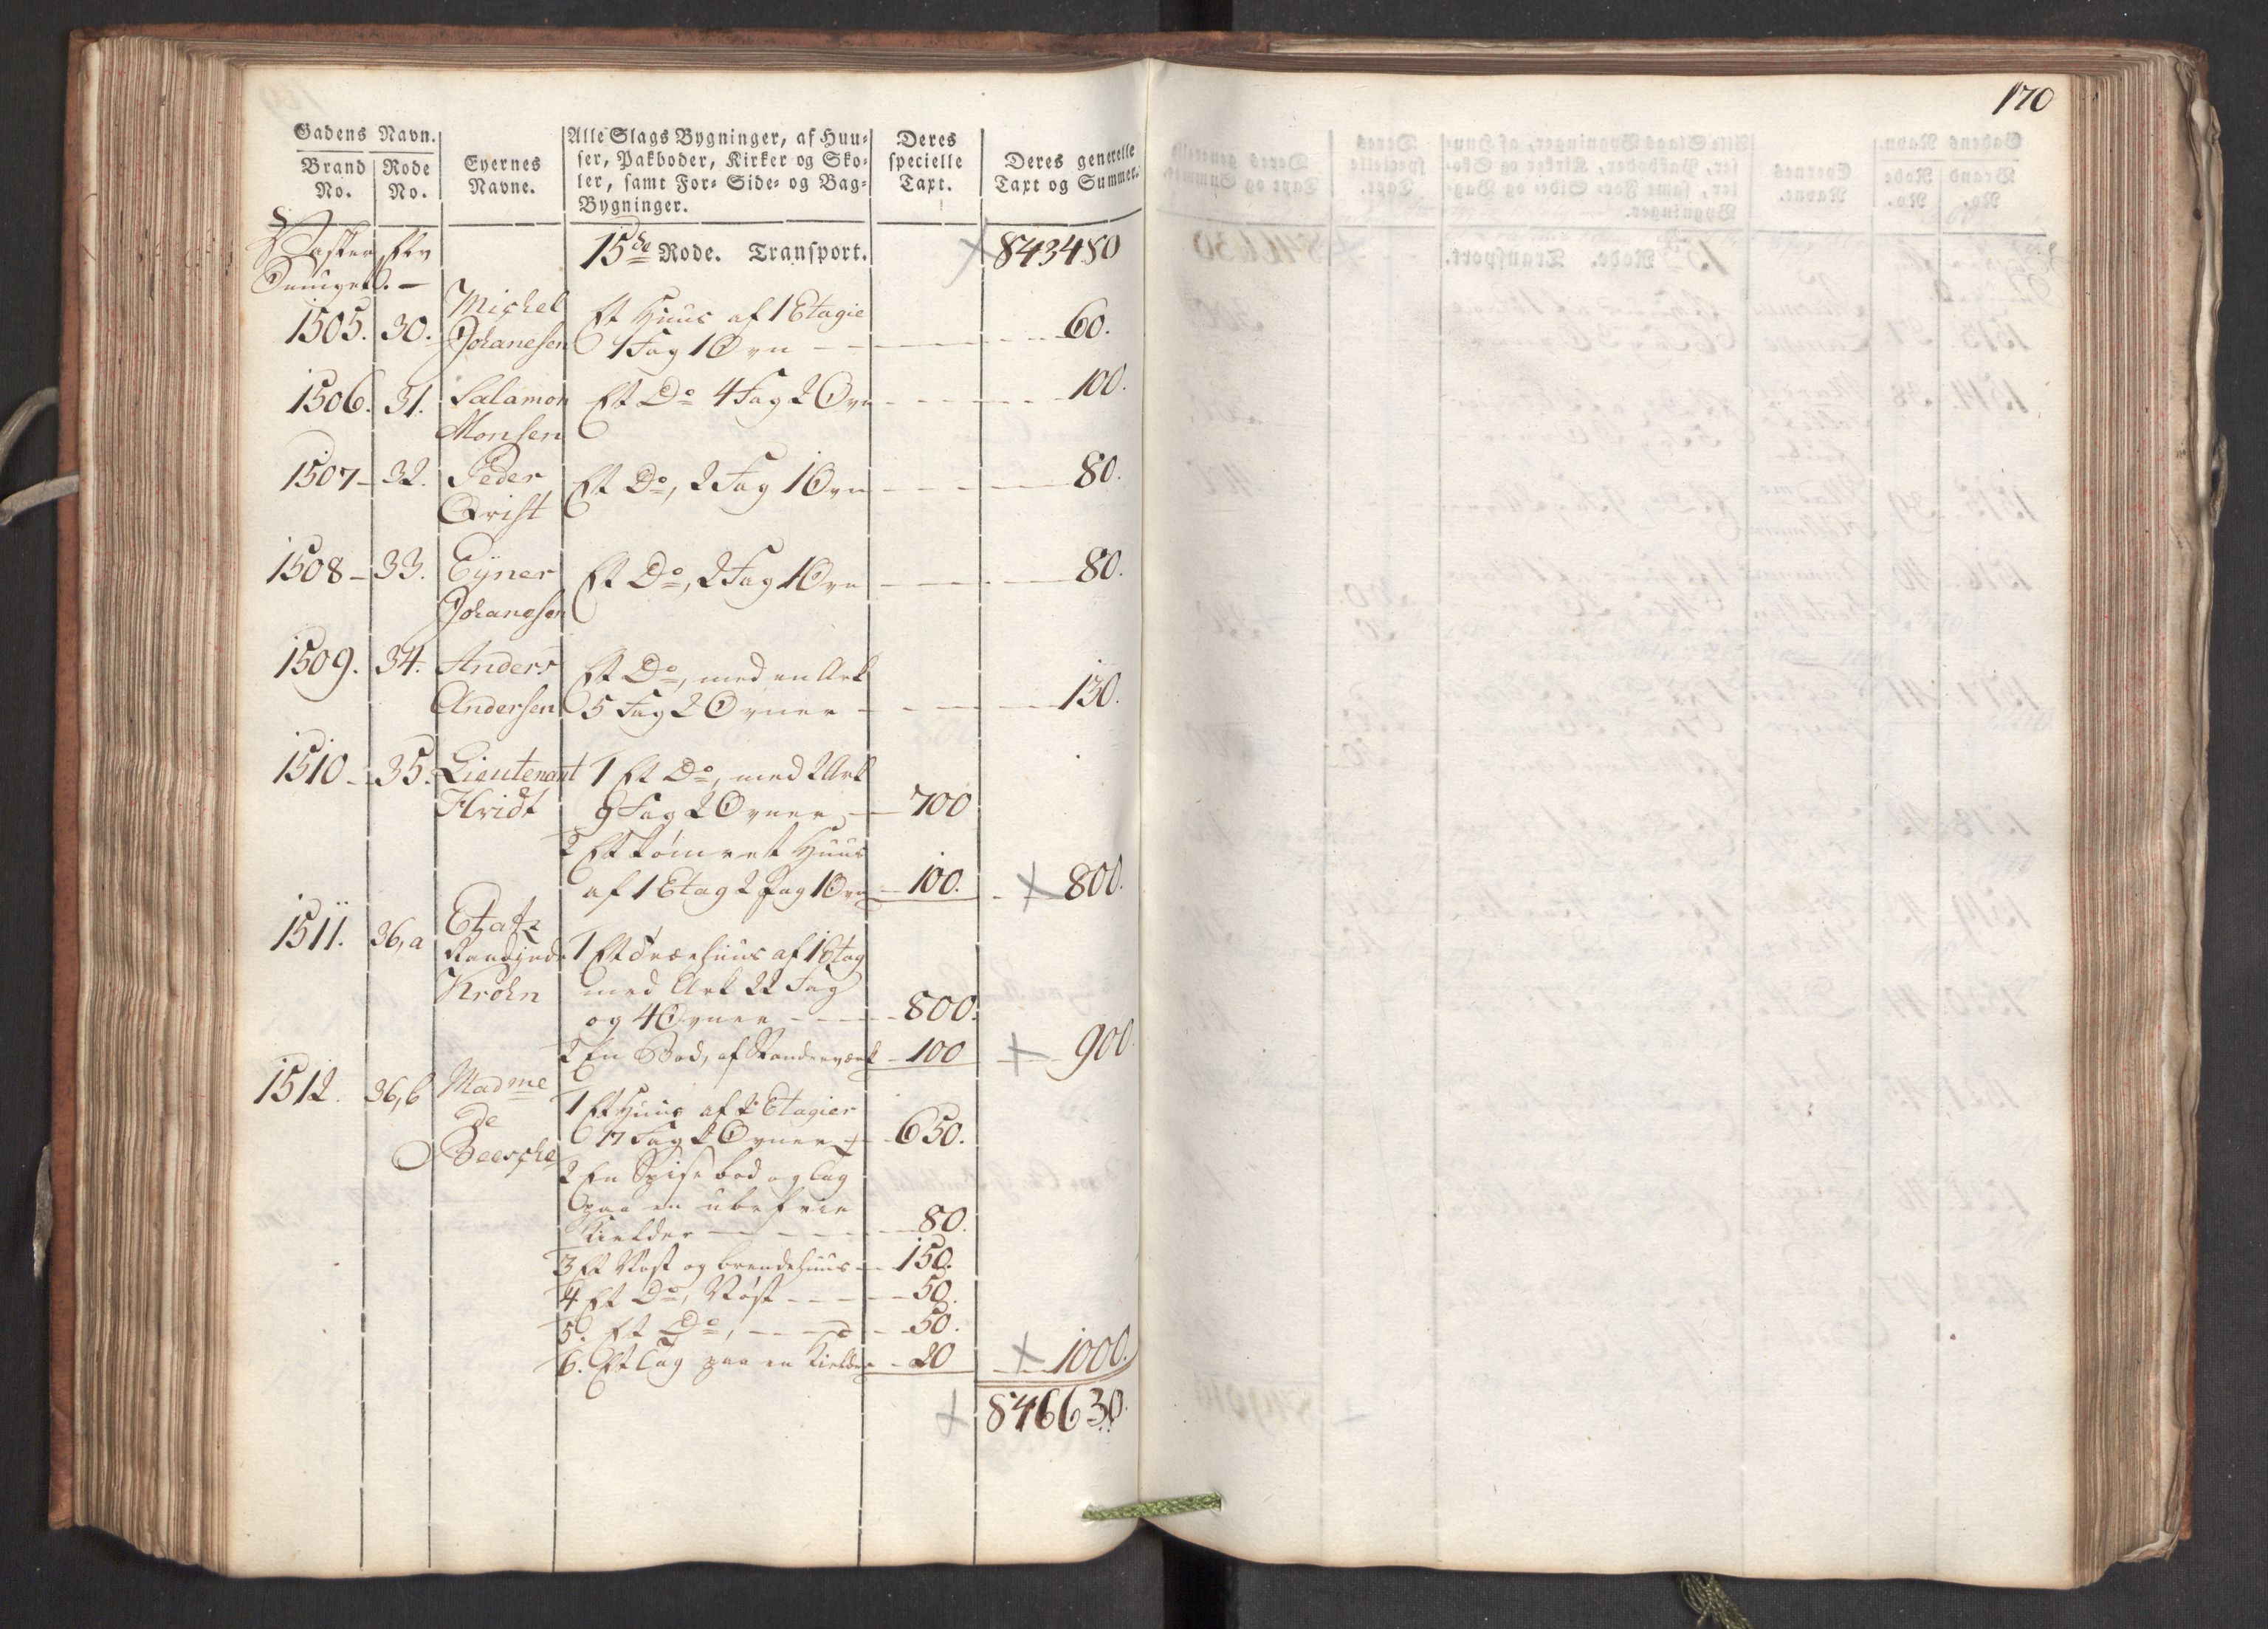 170
Gadens Navn.
Brand No.
Rode No.
Eyernes Navne.
Alle Slags Bygninger, af Huu-
ser, Pakboder, Kirker og Sko-
ler, samt For- Side- og Bag-
Bygninger.
Deres specielle Taxt.
Deres generelle Taxt og Summer.
15de Rode. Transport. 843480
1505. 30. Michel Et Huus af 1 Etagie
Johanesen 1 Fag 1 Ovn 60.
1506. 31. Salamon Et Do 4 Fag 2 Ovn 100.
Monsen
1507 32. Peder Et Do, 2 Fag 1 Ovn 80.
Qvist
1508 33. Eyner Et Do, 2 Fag 1 Ovn 80.
Johanesen
1509. 34. Anders Et Do, med en Ark
Andersen 5 Fag 2 Ovner 130.
1510 35. Lieutenant 1 Et Do, med 2 Ark
Hvidt 9 Fag 2 Ovner 700
2 Et tømret Huus
af 1 Etag 2 Fag 1 Ovn 100. 800.
1511. 36,a Etatz
Raadinde 1 Et Træehuus af 1 Etag
Krohn med Ark 22 Fag
og 4 Ovner 800.
2 En Bod, af Standerværk 100 900.
1512. 36,b Madme
de 1 Et Huus af 2 Etagier
Beesche 7 Fag 2 Ovner 650.
2 En Spisebod og Tag
paa en ubefrie
Kielder 80.
3 Et Røst og brendehuus 150.
4 Et Do, Røst 50.
5. Et Do, 50.
6. Et Tag paa en Kielder 20 1000.
846630.